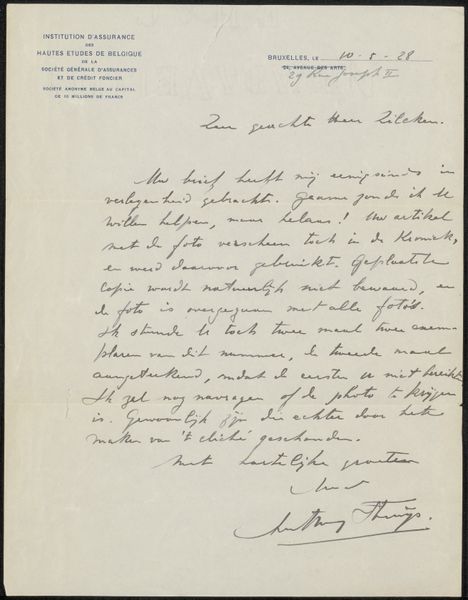 INSTITUTION D'ASSURANCE
DES
HAUTES ETUDES DE BELGIQUE
DE LA
SOCIÉTÉ GÉNÉRALE D'ASSURANCES
ET DE CRÉDIT FONCIER
SOCIÉTÉ ANONYME BELGE AU CAPITAL
DE 10 MILLIONS DE FRANCS
BRUXELLES, LE 10-5-28
24, AVENUE DES ARTS
29 Rue Joseph II
Zeer geachte Heer Zilcken.
Uw brief heeft mij eenigszinds in
verlegenheid gebracht. Gaarne zou ik U
willen helpen, maar helaas! Uw artikel
met de foto verscheen toch in de Kroniek,
en werd daarvoor gebruikt. Geplaatste
copie wordt natuurlijk niet bewaard, en
de foto is overgegaan met alle foto's.
Ik stuurde U toch twee maal twee exem-
plaren van dit nummer, de tweede maal
aangeteekend, omdat de eersten U niet bereikten
Ik zal nog navragen of de photo te krijgen
is. Gewoonlijk zijn die echter door het
maken van 't cliché geschonden.
Met hartelijke groeten
Uw
Anthony